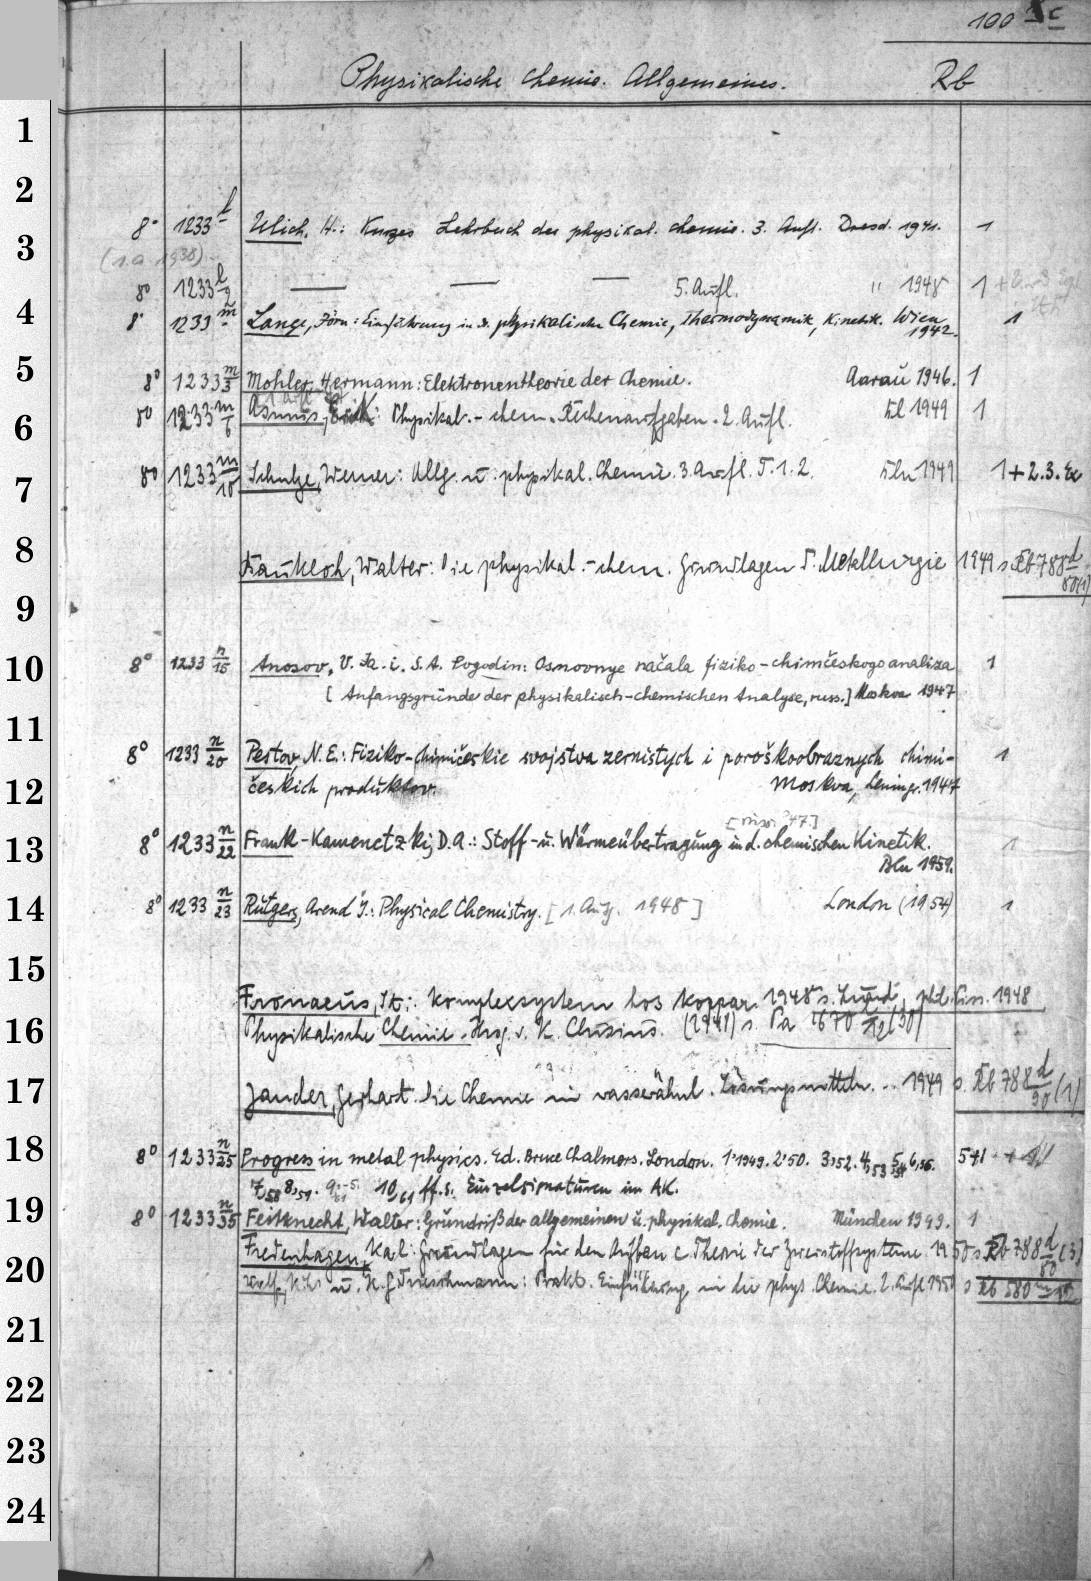 100 3c
Physikalische Chemie. Allgemeines. Rb
1
2
8° 1233 l Ulich, H.: Kurzes Lehrbuch der physikal. Chemie. 3. Aufl. Dresd. 1941. 1
3
(1. A. 1938)
8° 1233 l/9 — — — 5. Aufl. " 1948 1 +
4
8° 1233 m Lange, Jörn: Einführung in d. physikalische Chemie, Thermodynamik, Kinetik. Wien 1942. 1
5
8° 1233 m/3 Mohler, Hermann: Elektronentheorie der Chemie. Aarau 1946. 1
1. Aufl.
6
8° 1233 m/6 Asmus, Erik: Physikal.-chem. Rechenaufgaben. 2. Aufl. 1949 1
7
8° 1233 m/10 Schulze, Werner: Allg. u. physikal. Chemie. 3. Aufl. T. 1. 2. Bln 1949 1 + 2.3. Ex
8
Walter: Die physikal.-chem. Grundlagen d. Metallurgie 1949 s. Rb 788 d/80(1)
9
10
8° 1233 n/15 Anosov, V. Ja. i. S. A. Pogodin: Osnovnye načala fiziko-chimičeskogo analiza 1
[Anfangsgründe der physikalisch-chemischen Analyse, russ.] Moskva 1947
11
8° 1233 n/20 Pestov, N. E.: Fiziko-chimičeskie svojstva zernistych i poroškoobraznych chimi- 1
12
českich produktov. Moskva, Leningr. 1947
[russ. 47.]
13
8° 1233 n/22 Frank-Kamenetzkij, D. A.: Stoff- u. Wärmeübertragung in d. chemischen Kinetik. 1
Bln 1959.
14
8° 1233 n/23 Rutgers, Arend J.: Physical Chemistry. [1. Aufl. 1948] London (1954) 1
15
Fronaeus, St.: Komplexsystem hos koppar. 1948 s. Lund, phil. Diss. 1948
16
Physikalische Chemie. Hrsg. v. K. Clusius. (1941) s. Pa 1670 (30)
17
Jander, Gerhart: Die Chemie in wasserähnl. Lösungsmitteln. .. 1949 s. Rb 788 d/90 (1)
18
8° 1233 n/25 Progress in metal physics. Ed. Bruce Chalmers. London. 1'1949. 2'50. 3,52. 4,53 5,54 6,56. 5+1
7,58 8,59. 9,61 10,61 ff. s. Einzelsignaturen im AK.
19
8° 1233 n/35 Feitknecht, Walter: Grundriß der allgemeinen u. physikal. Chemie. München 1949. 1
20
Fredenhagen, Karl: Grundlagen für den Aufbau e. Theorie der Zweistoffsysteme. 1950 s. Rb 788 d/80 (3)
Wolf, K. L. u. H. G. Trieschmann: Prakt. Einführung in die phys. Chemie. 2. Aufl 1950 s Rb 580
21
22
23
24